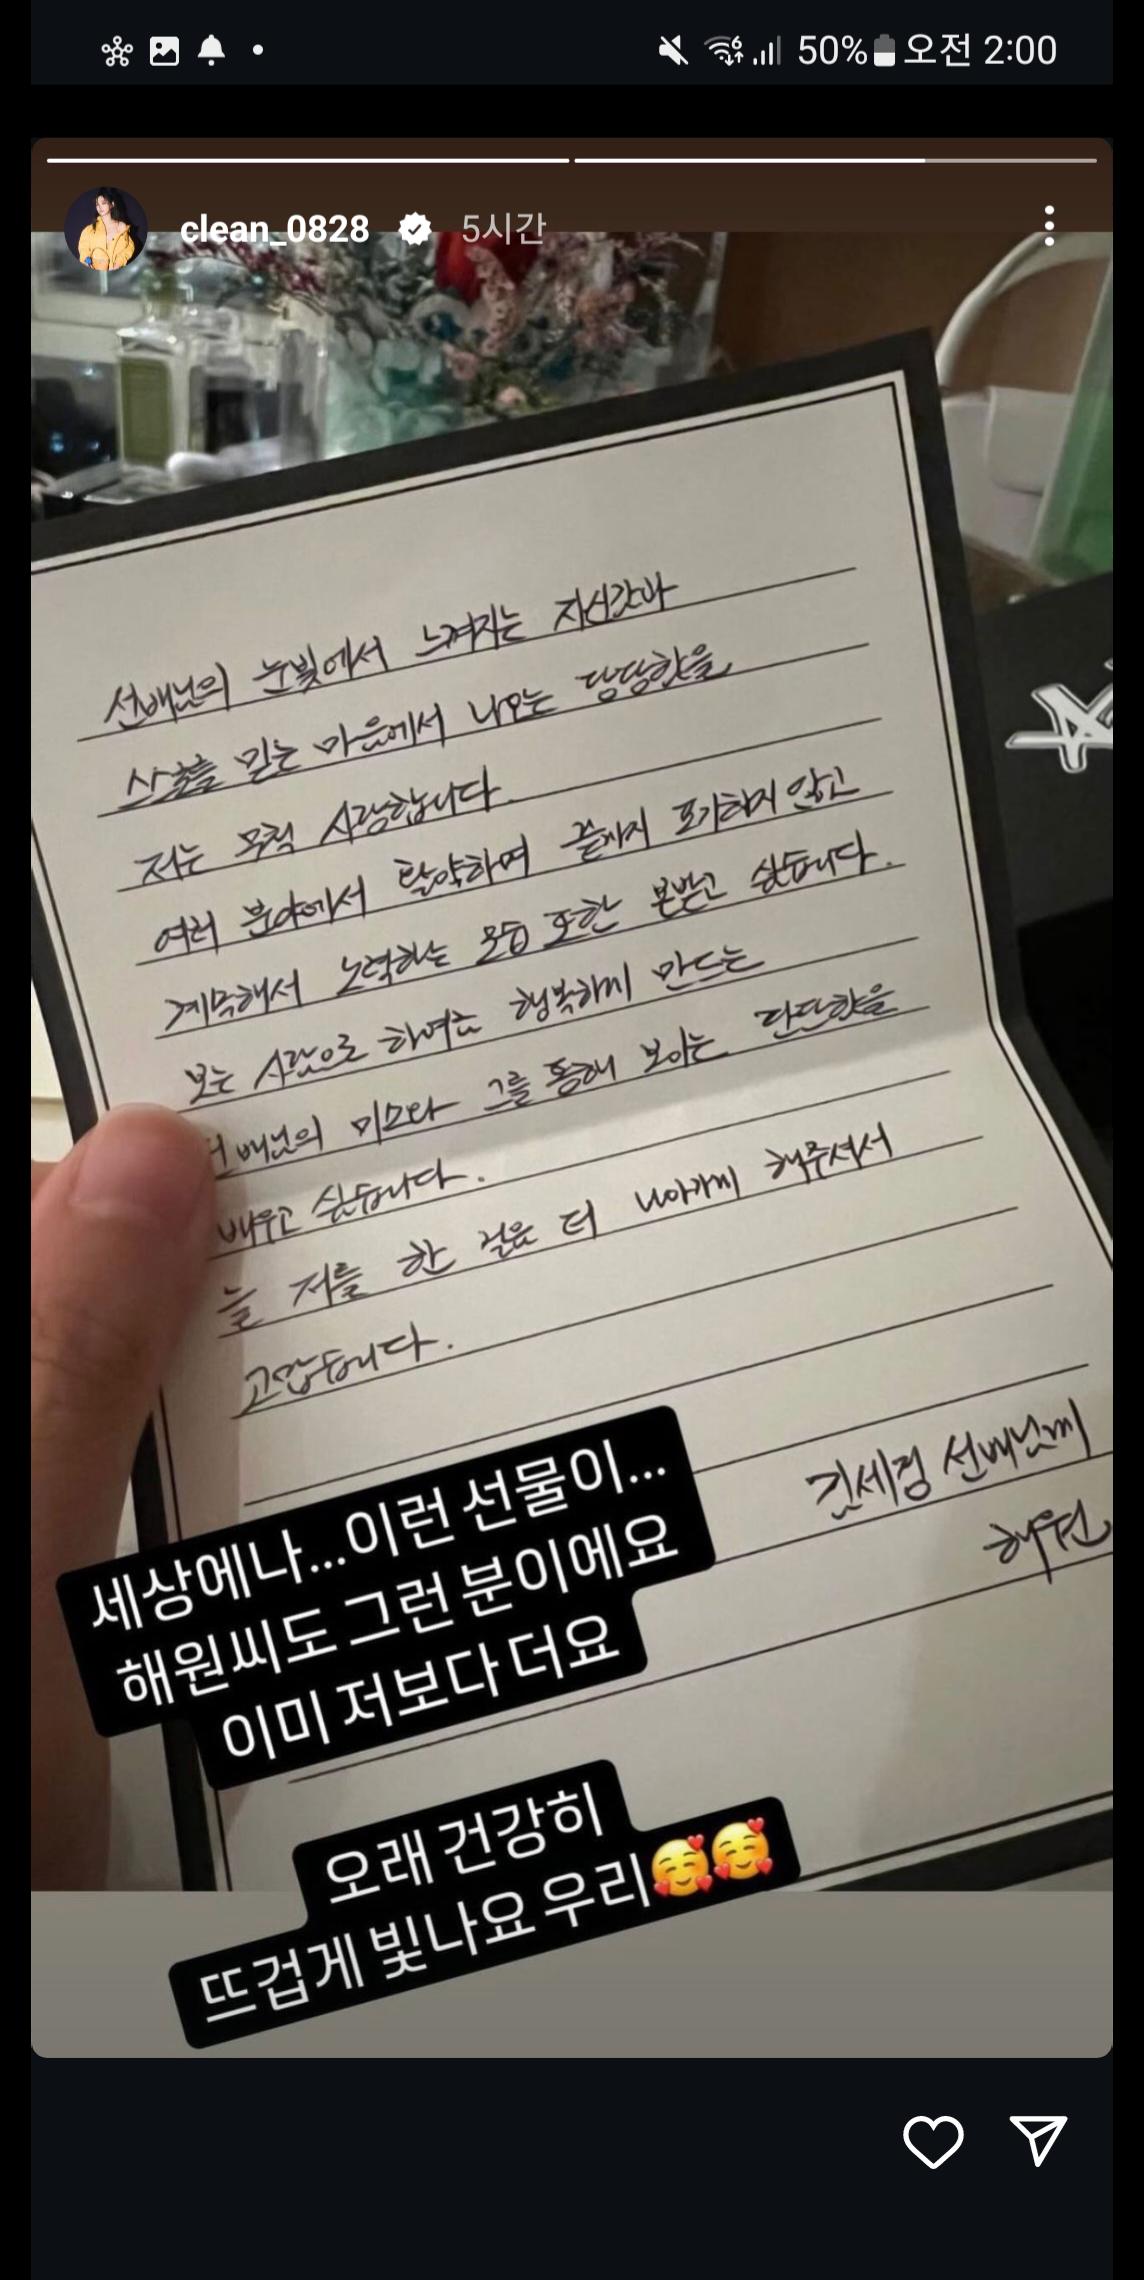 50% 오전 2:00
clean_0828 5시간
선배님의 눈빛에서 느껴지는 자신감과
스스로를 믿는 마음에서 나오는 당당함을
저는 무척 사랑합니다.
여러 분야에서 활약하며 끝까지 포기하지 않고
계속해서 노력하는 모습 또한 본받고 싶습니다.
보는 사람으로 하여금 행복하게 만드는
배님의 미소와 그를 통해 보이는 단단함을
배우고 싶습니다.
늘 저를 한 걸음 더 나아가게 해주셔서
고맙습니다.
김세정 선배님께
해원
세상에나...이런 선물이...
해원씨도 그런 분이에요
이미 저보다 더요
오래 건강히
뜨겁게 빛나요 우리🥰🥰